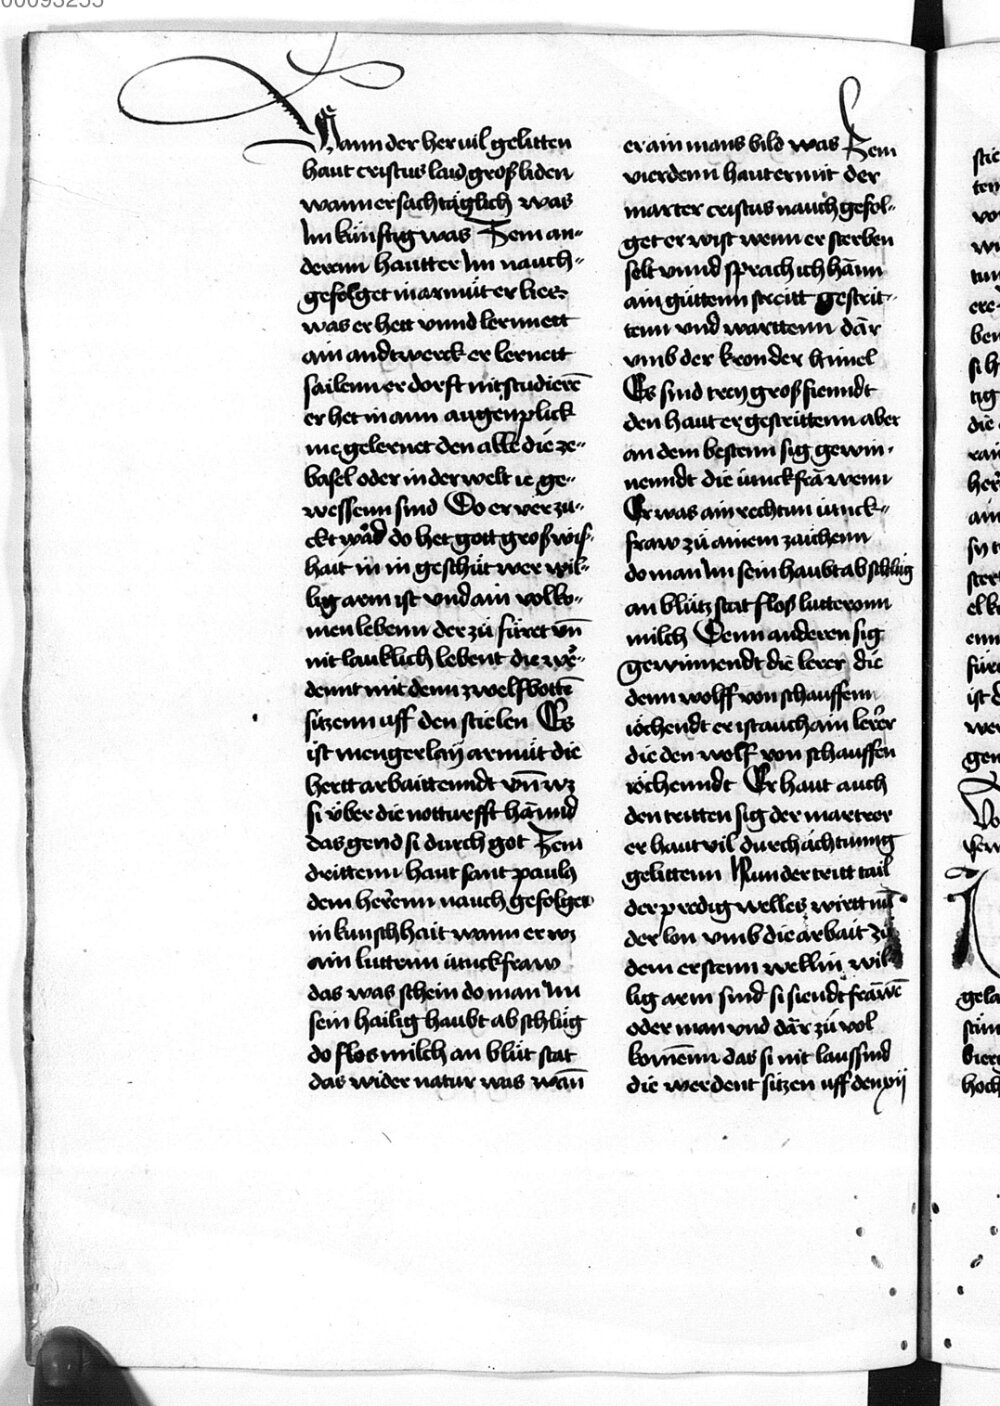 Wann der her uil gelitten
haut cristus laid groß liden
wann er sach täglich was
Im künfftig was Zem an-
derenn hautter Im nauch-
gefolget in armüt er liez
was er hett vnnd lernnett
ain andtwerck er lernett
sailenn er dorft nit studierē
er het in ainn augenplick
me gelernet den alle die ze-
basel oder in der welt ie ge-
wessenn sind Do er ver zu-
ckt ward do het gott groß wis-
hait in in geschüt wer wil-
lig arm ist vnd ain volko-
men lebenn der zü füret vn̄
nit lauklich lebent die wer-
dennt mit denn zwelfbottē
sitzenn uff den stielen Es
ist mengerlay armüt die
hertt arbaittenndt vnn̄ wz
si über die notturfft hānnd
das gend si durch got Zem
drittenn haut sant paulꝰ
dem herrenn nauch gefolget
in kunschhait wann er wz
ain luttenn iunckfraw
das was schein do man Im
sein hailig haubt ab schlüg
do flos milch an blüt stat
das wider natur was wān
er ain mans bild was Zem
vierdenn haut er mit der
marter cristus nauch gefol-
get er wist wenn er sterben
solt vnnd sprach ich hānn
ain güttenn streitt gestrit-
tenn vnd warttenn dār
vmb der kron der himel
Es sind trey groß fienndt
den haut er gestrittenn aber
an dem bestenn sig gewin-
nenndt die iunckfrā wenn
Er was ain rechtun iunck-
fraw zü ainem zaichenn
do man Im sein haubt ab schlüg
an blütz stat floß lutteronn
milch Denn anderen sig
gewinnendt die lerer die
denn wolff von schauffenn
iöchendt er ist auch ain lerer
die den wolf von schauffen
iöchenndt Er haut auch
den tritten sig der martrer
er haut vil durchächtunng
gelittenn Nun der tritt tail
der predig welles wirtt nü
der lon vmb die arbait zü
dem erstenn wellin wil
lig arm sind si siendt frāwē
oder man vnd där zü vol
komēnn das si nit laussind
die werdent sitzen uff den xij